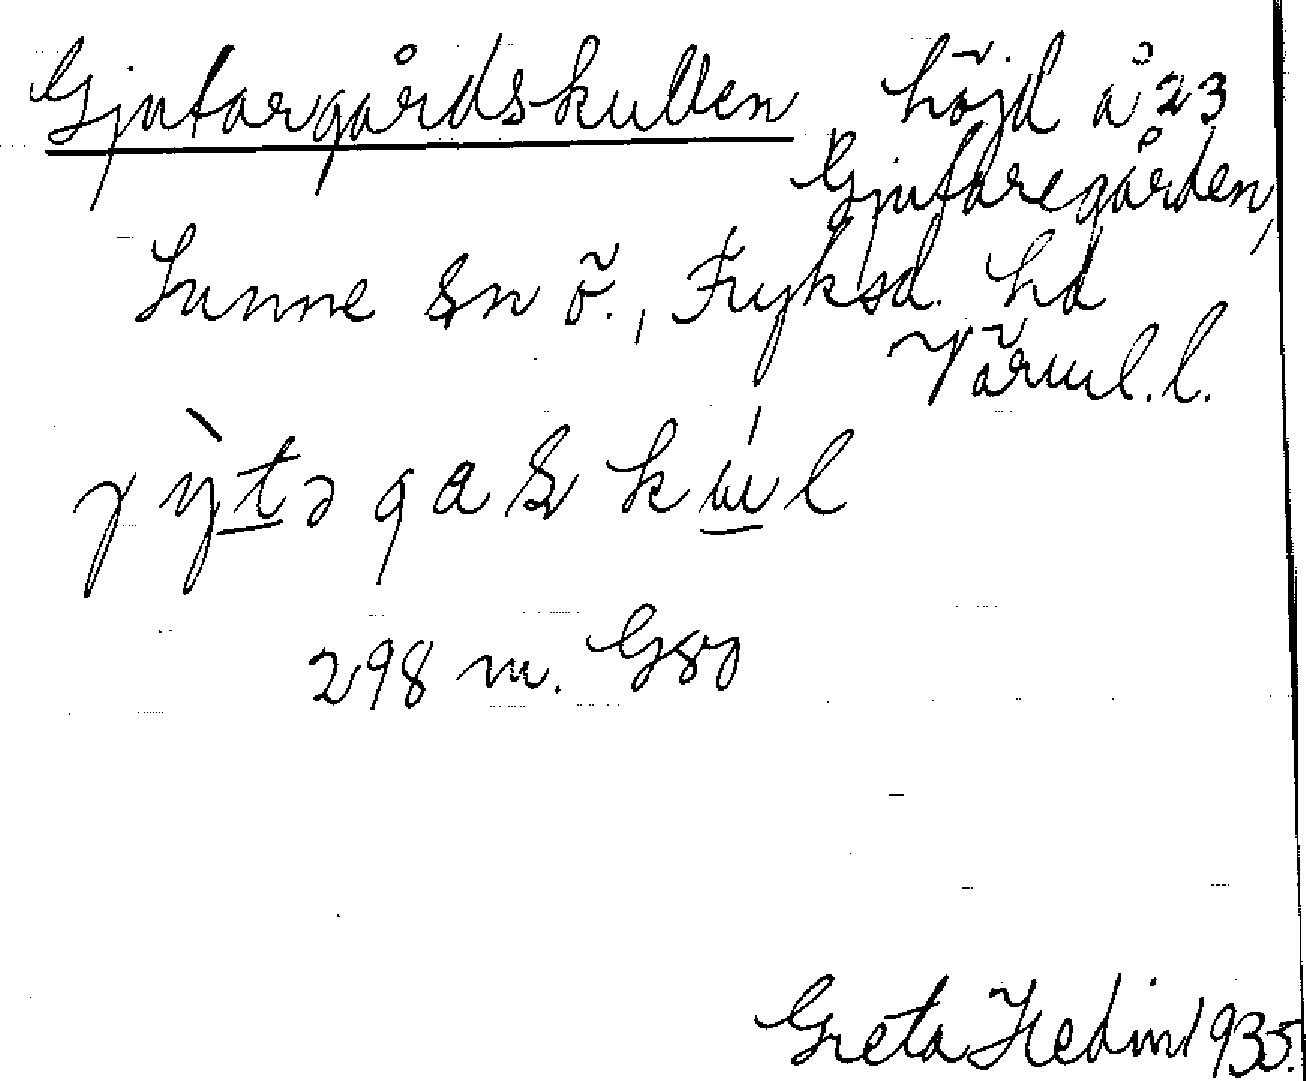 Gjutargårdskullen, höjd å 23
Gjutaregården,
Sunne sn ö., Fryksd. hd
Värml. l.
298 m. GSO
Greta Hedin 1935.